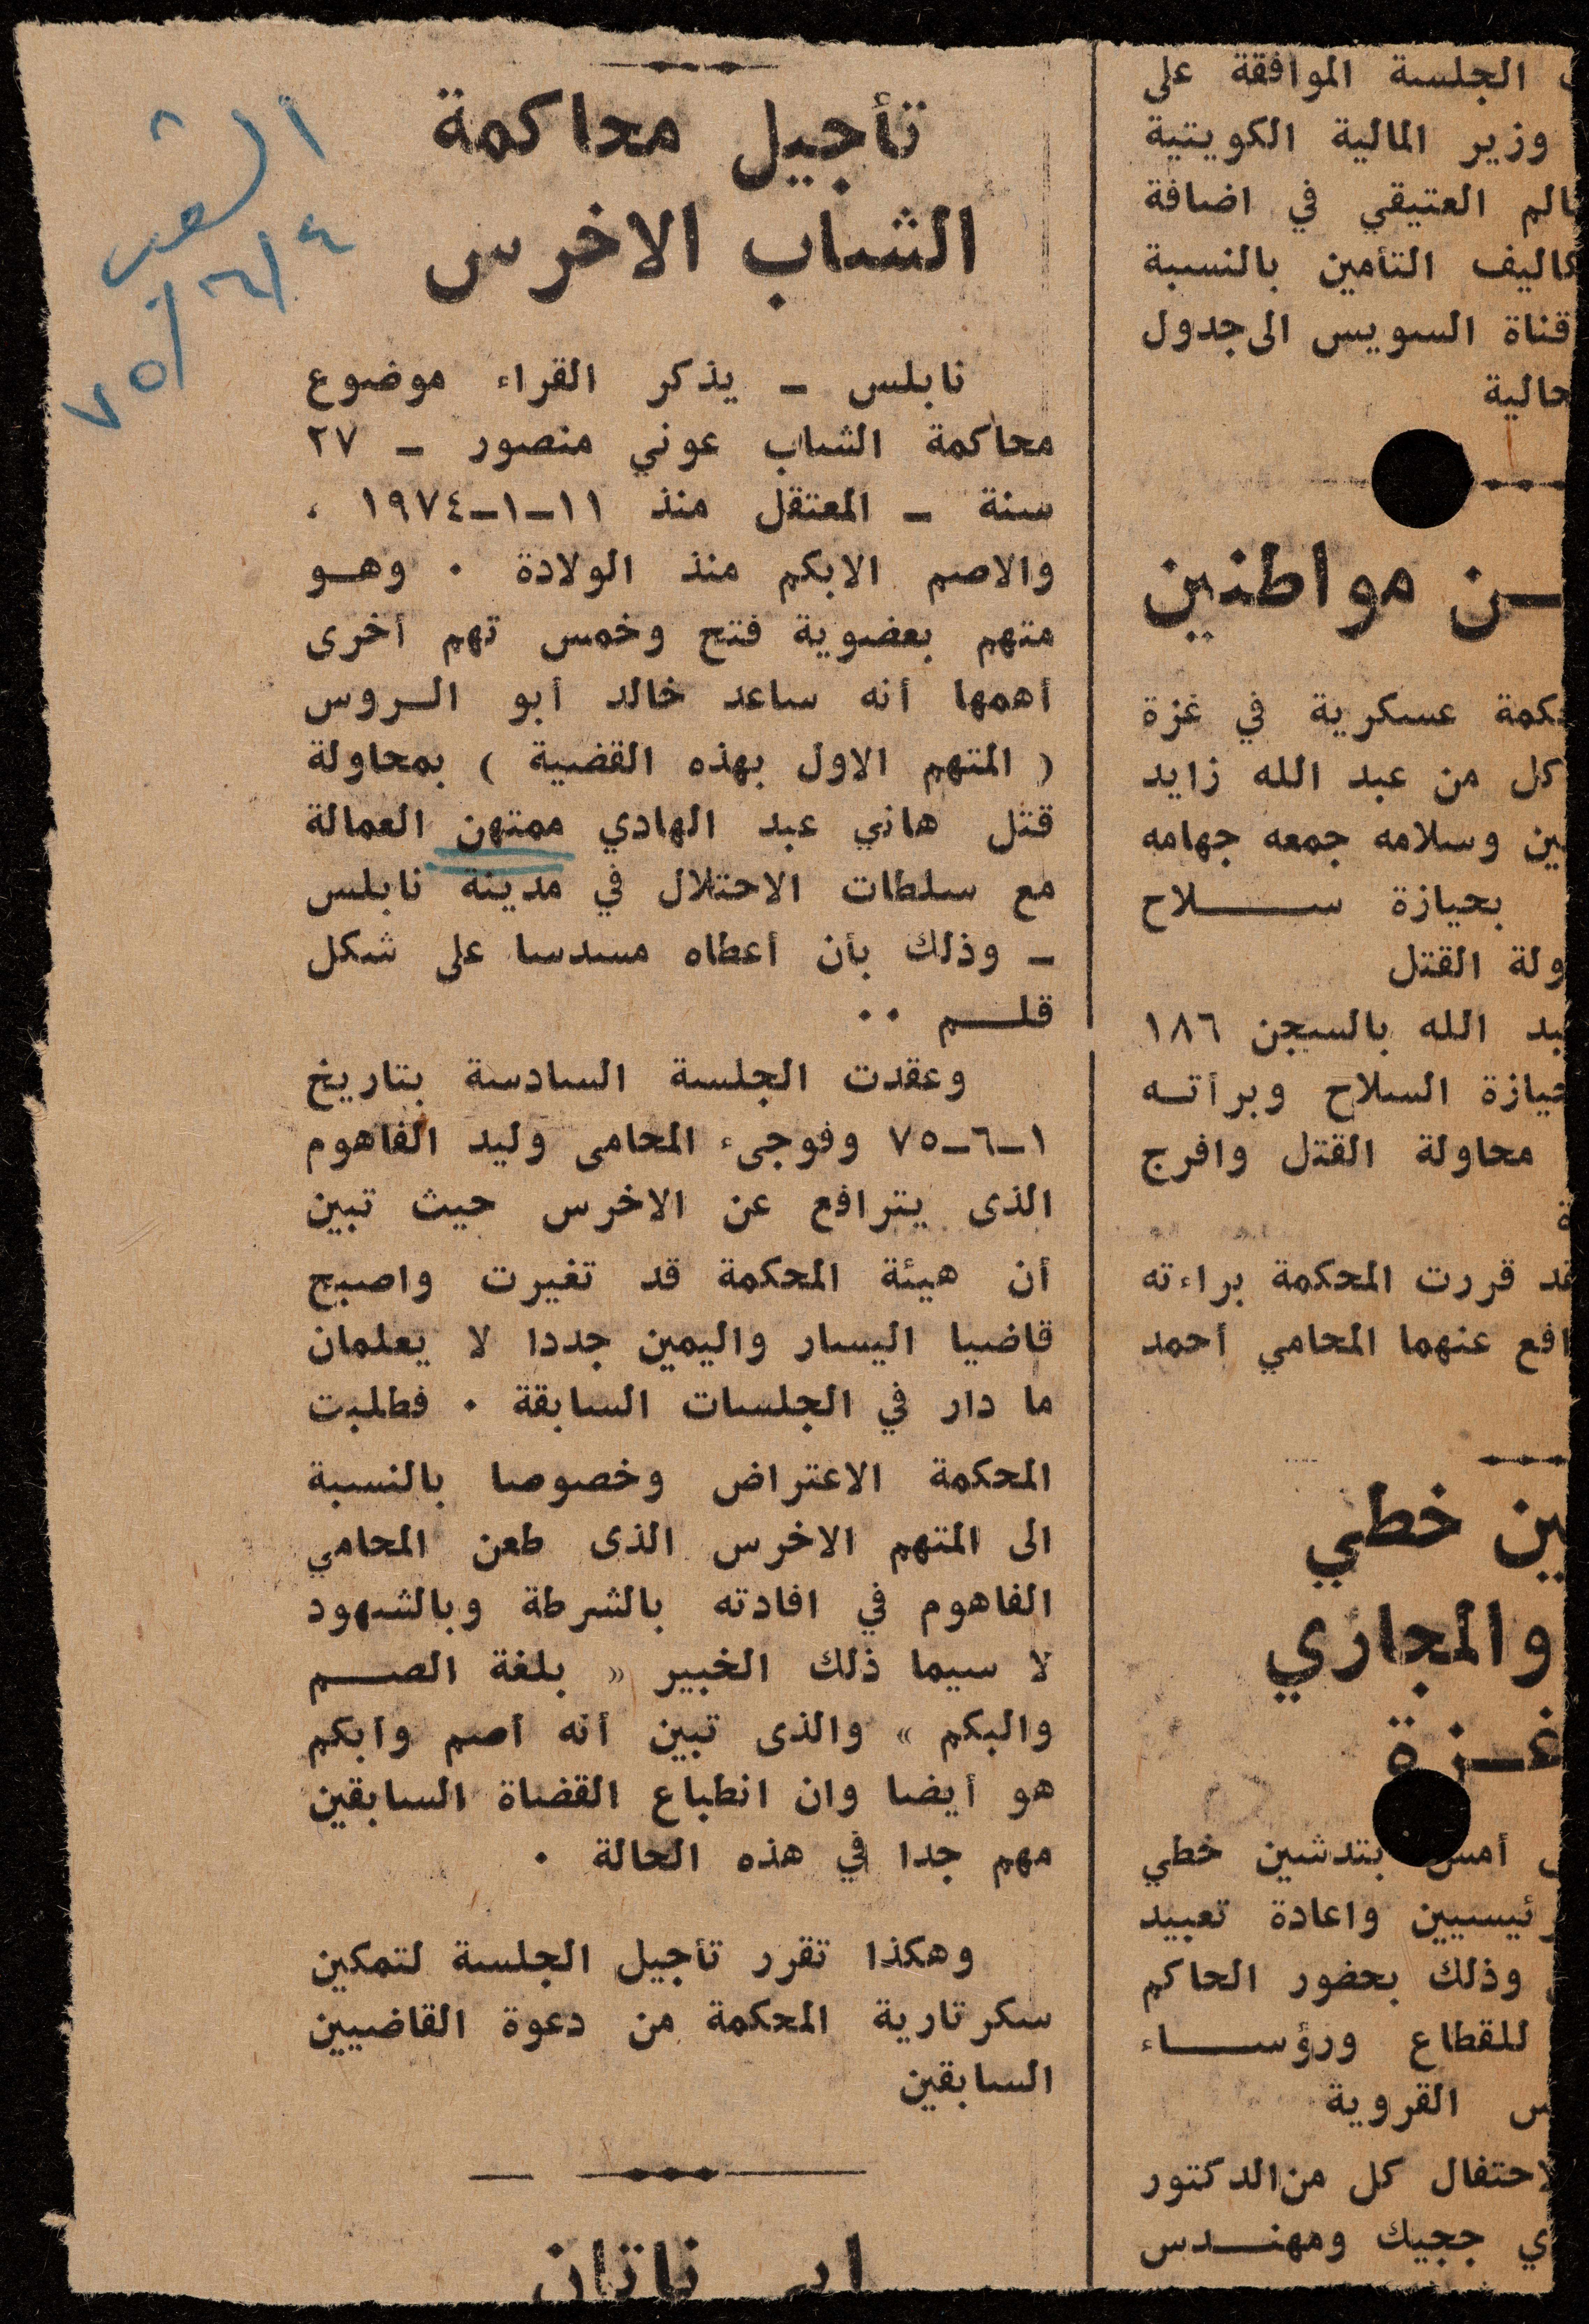 الشعب
٤/٦/٧٥
تأجيل محاكمة
الشاب الاخرس
نابلس ـ يذكر القراء موضوع
محاكمة الشاب عوني منصور ـ ٢٧
سنة ـ المعتقل منذ ١١ـ١ـ١٩٧٤ ،
والاصم الابكم منذ الولادة . وهـو
متهم بعضوية فتح وخمس تهم أخرى
أهمها أنه ساعد خالد أبو الـروس
( المتهم الاول بهذه القضية ) بمحاولة
قتل هاني عبد الهادي ممتهن العمالة
مع سلطات الاحتلال في مدينة نابلس
ـ وذلك بأن أعطاه مسدسا على شكل
قلـــم ..
وعقدت الجلسة السادسة بتاريخ
١ـ٦ـ٧٥ وفوجىء المحامى وليد الفاهوم
الذى يترافع عن الاخرس حيث تبين
أن هيئة المحكمة قد تغيرت واصبح
قاضيا اليسار واليمين جددا لا يعلمان
ما دار في الجلسات السابقة . فطلبت
المحكمة الاعتراض وخصوصا بالنسبة
الى المتهم الاخرس الذى طعن المحامي
الفاهوم في افادته بالشرطة وبالشهود
لا سيما ذلك الخبير « بلغة الصـــم
والبكم » والذى تبين أنه أصم وأبكم
هو أيضا وان انطباع القضاة السابقين
مهم جدا في هذه الحالة .
وهكذا تقرر تأجيل الجلسة لتمكين
سكرتارية المحكمة من دعوة القاضيين
السابقين
ناتان
الجلسة الموافقة على
وزير المالية الكويتية
العتيقي في اضافة
التأمين بالنسبة
قناة السويس الى جدول
حالية
ـن مواطنين
عسكرية في غزة
كل من عبد الله زايد
وسلامه جمعه جهامه
بحيازة ســـــلاح
ولة القتل
الله بالسجن ١٨٦
السلاح وبرأتـه
محاولة القتل وافرج
ة
قد قررت المحكمة براءته
افع عنهما المحامي أحمد
ين خطي
والمجاري
غـزة
أمس بتدشين خطي
ئيسيين واعادة تعبيد
وذلك بحضور الحاكم
للقطاع ورؤســـاء
القروية
احتفال كل من الدكتور
ججيك ومهنـــدس